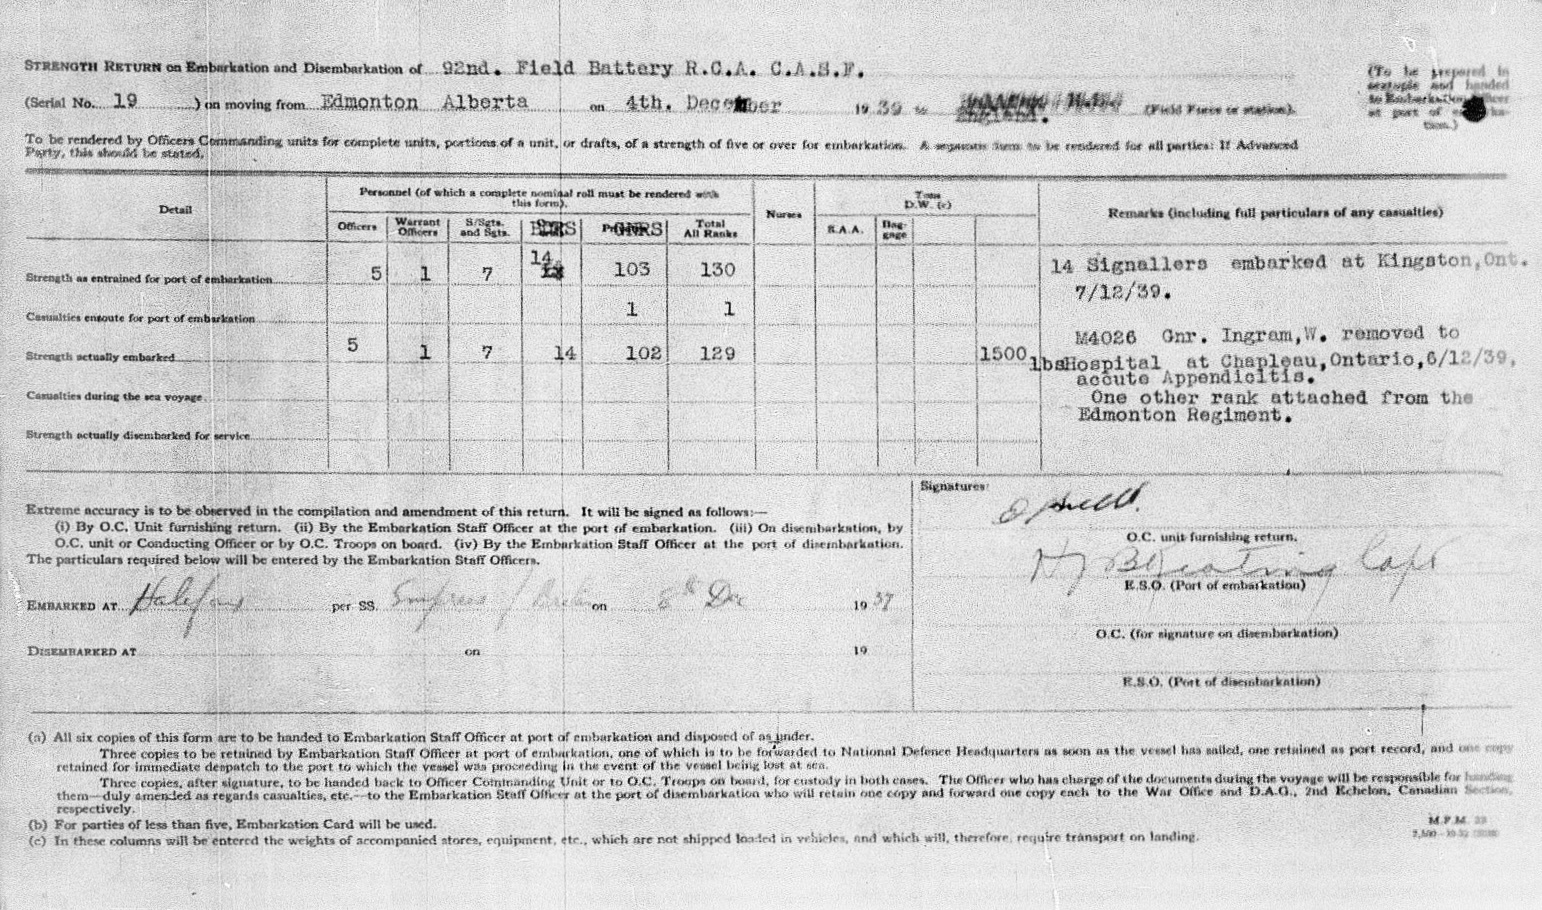 STRENGTH RETURN on Embarkation and Disembarkation of 92nd. Field Battery R.C.A. C.A.S.F.
(Serial No. 19 ) on moving from Edmonton Alberta on 4th. December 19 39 to England. (Field Force or station).
(To be prepared in
sextuple and handed
to Embarkation Officer
at port of embarka-
tion.)
To be rendered by Officers Commanding units for complete units, portions of a unit, or drafts, of a strength of five or over for embarkation. A separate form to be rendered for all parties: If Advanced
Party, this should be stated.
Detail
Personnel (of which a complete nominal roll must be rendered with
this form).
Nurses
Tons
D.W. (c)
Remarks (including full particulars of any casualties)
Officers Warrant Officers S/Sgts. and Sgts. GNRS Total All Ranks S.A.A. Bag-gage
Strength as entrained for port of embarkation 5 1 7 14 103 130
14 Signallers embarked at Kingston, Ont.
7/12/39.
Casualties enroute for port of embarkation 1 1
Strength actually embarked 5 1 7 14 102 129 1500 lbs
M4026 Gnr. Ingram, W. removed to
Hospital at Chapleau, Ontario, 6/12/39,
accute Appendicitis.
One other rank attached from the
Edmonton Regiment.
Casualties during the sea voyage
Strength actually disembarked for service
Extreme accuracy is to be observed in the compilation and amendment of this return. It will be signed as follows:—
(i) By O.C. Unit furnishing return. (ii) By the Embarkation Staff Officer at the port of embarkation. (iii) On disembarkation, by
O.C. unit or Conducting Officer or by O.C. Troops on board. (iv) By the Embarkation Staff Officer at the port of disembarkation.
The particulars required below will be entered by the Embarkation Staff Officers.
EMBARKED AT Halifax per SS. Empress of on 8th Dec 19 39
DISEMBARKED AT on 19
Signatures:
O.C. unit furnishing return.
Keating Capt
E.S.O. (Port of embarkation)
O.C. (for signature on disembarkation)
E.S.O. (Port of disembarkation)
(a) All six copies of this form are to be handed to Embarkation Staff Officer at port of embarkation and disposed of as under.
Three copies to be retained by Embarkation Staff Officer at port of embarkation, one of which is to be forwarded to National Defence Headquarters as soon as the vessel has sailed, one retained as port record, and one copy
retained for immediate despatch to the port to which the vessel was proceeding in the event of the vessel being lost at sea.
Three copies, after signature, to be handed back to Officer Commanding Unit or to O.C. Troops on board, for custody in both cases. The Officer who has charge of the documents during the voyage will be responsible for handing
them—duly amended as regards casualties, etc.—to the Embarkation Staff Officer at the port of disembarkation who will retain one copy and forward one copy each to the War Office and D.A.G., 2nd Echelon, Canadian Section,
respectively.
(b) For parties of less than five, Embarkation Card will be used.
(c) In these columns will be entered the weights of accompanied stores, equipment, etc., which are not shipped loaded in vehicles, and which will, therefore, require transport on landing.
M.F.M. 22